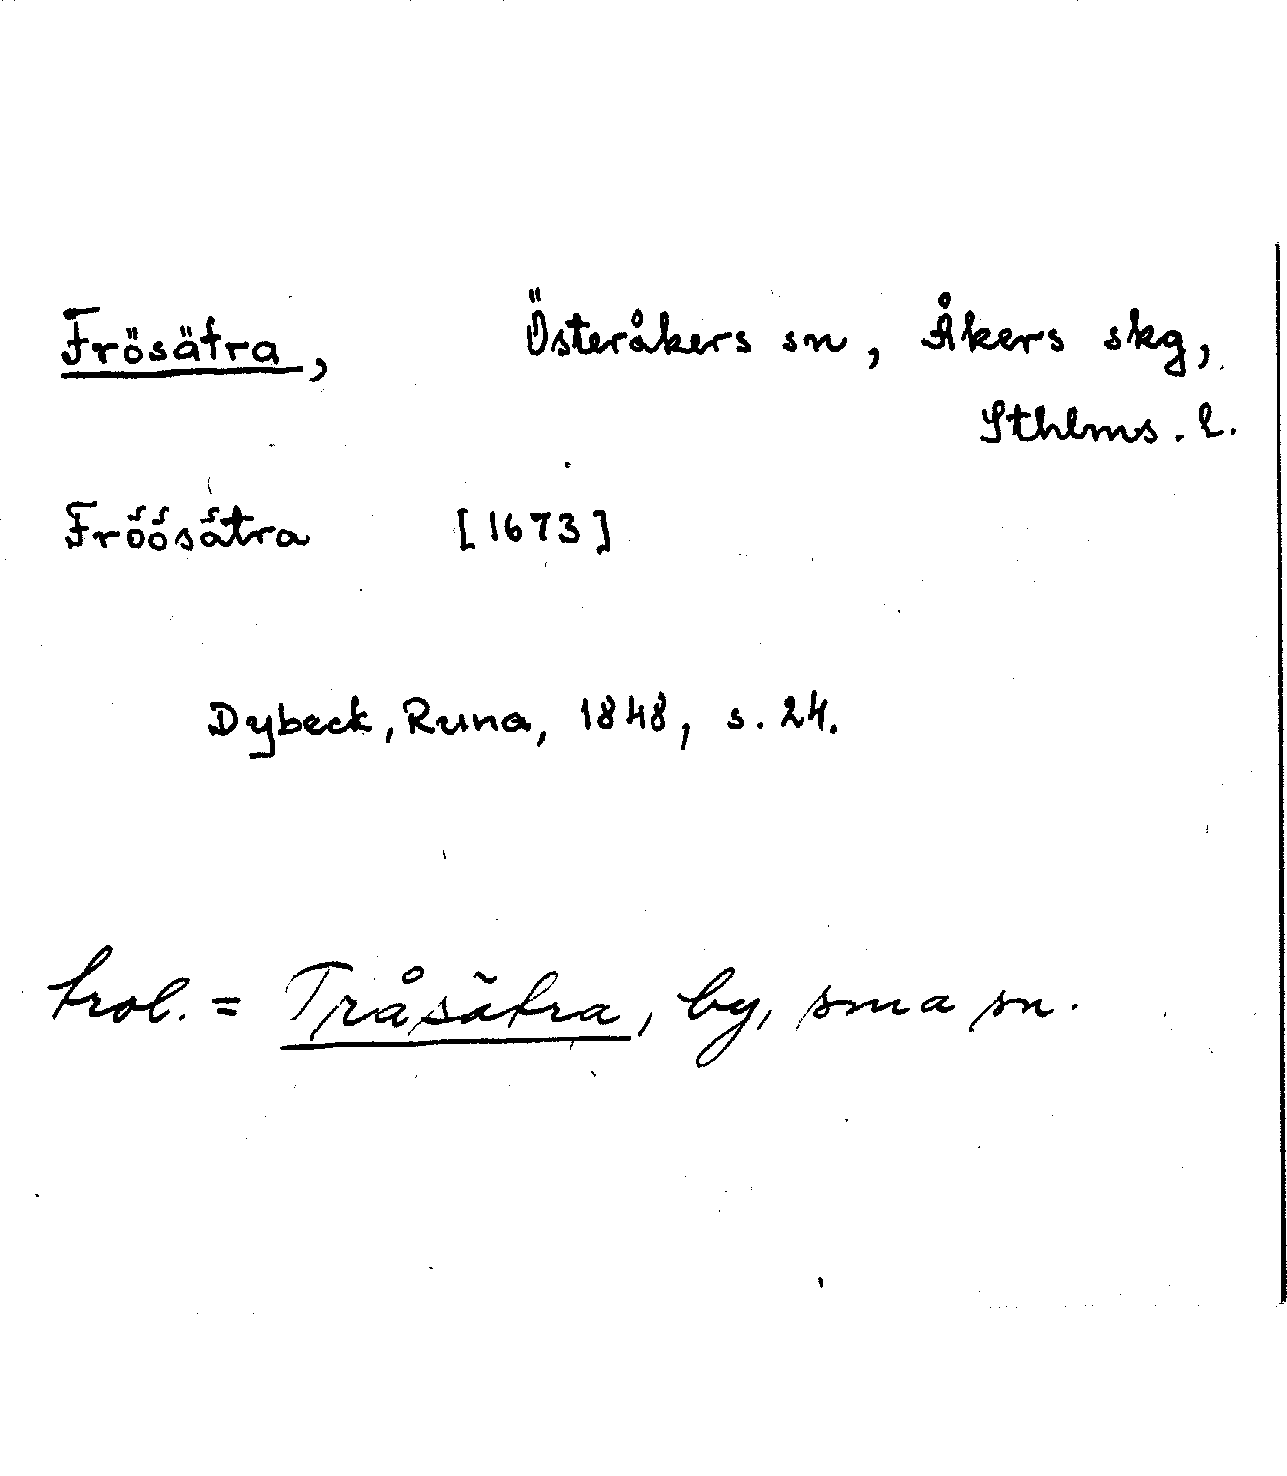 Frösätra, Österåkers sn, Åkers skg,
Sthlms. l.
Fröösätra [1673]
Dybeck, Runa, 1848, s. 24.
trol. = Tråsätra, by, sma sn.